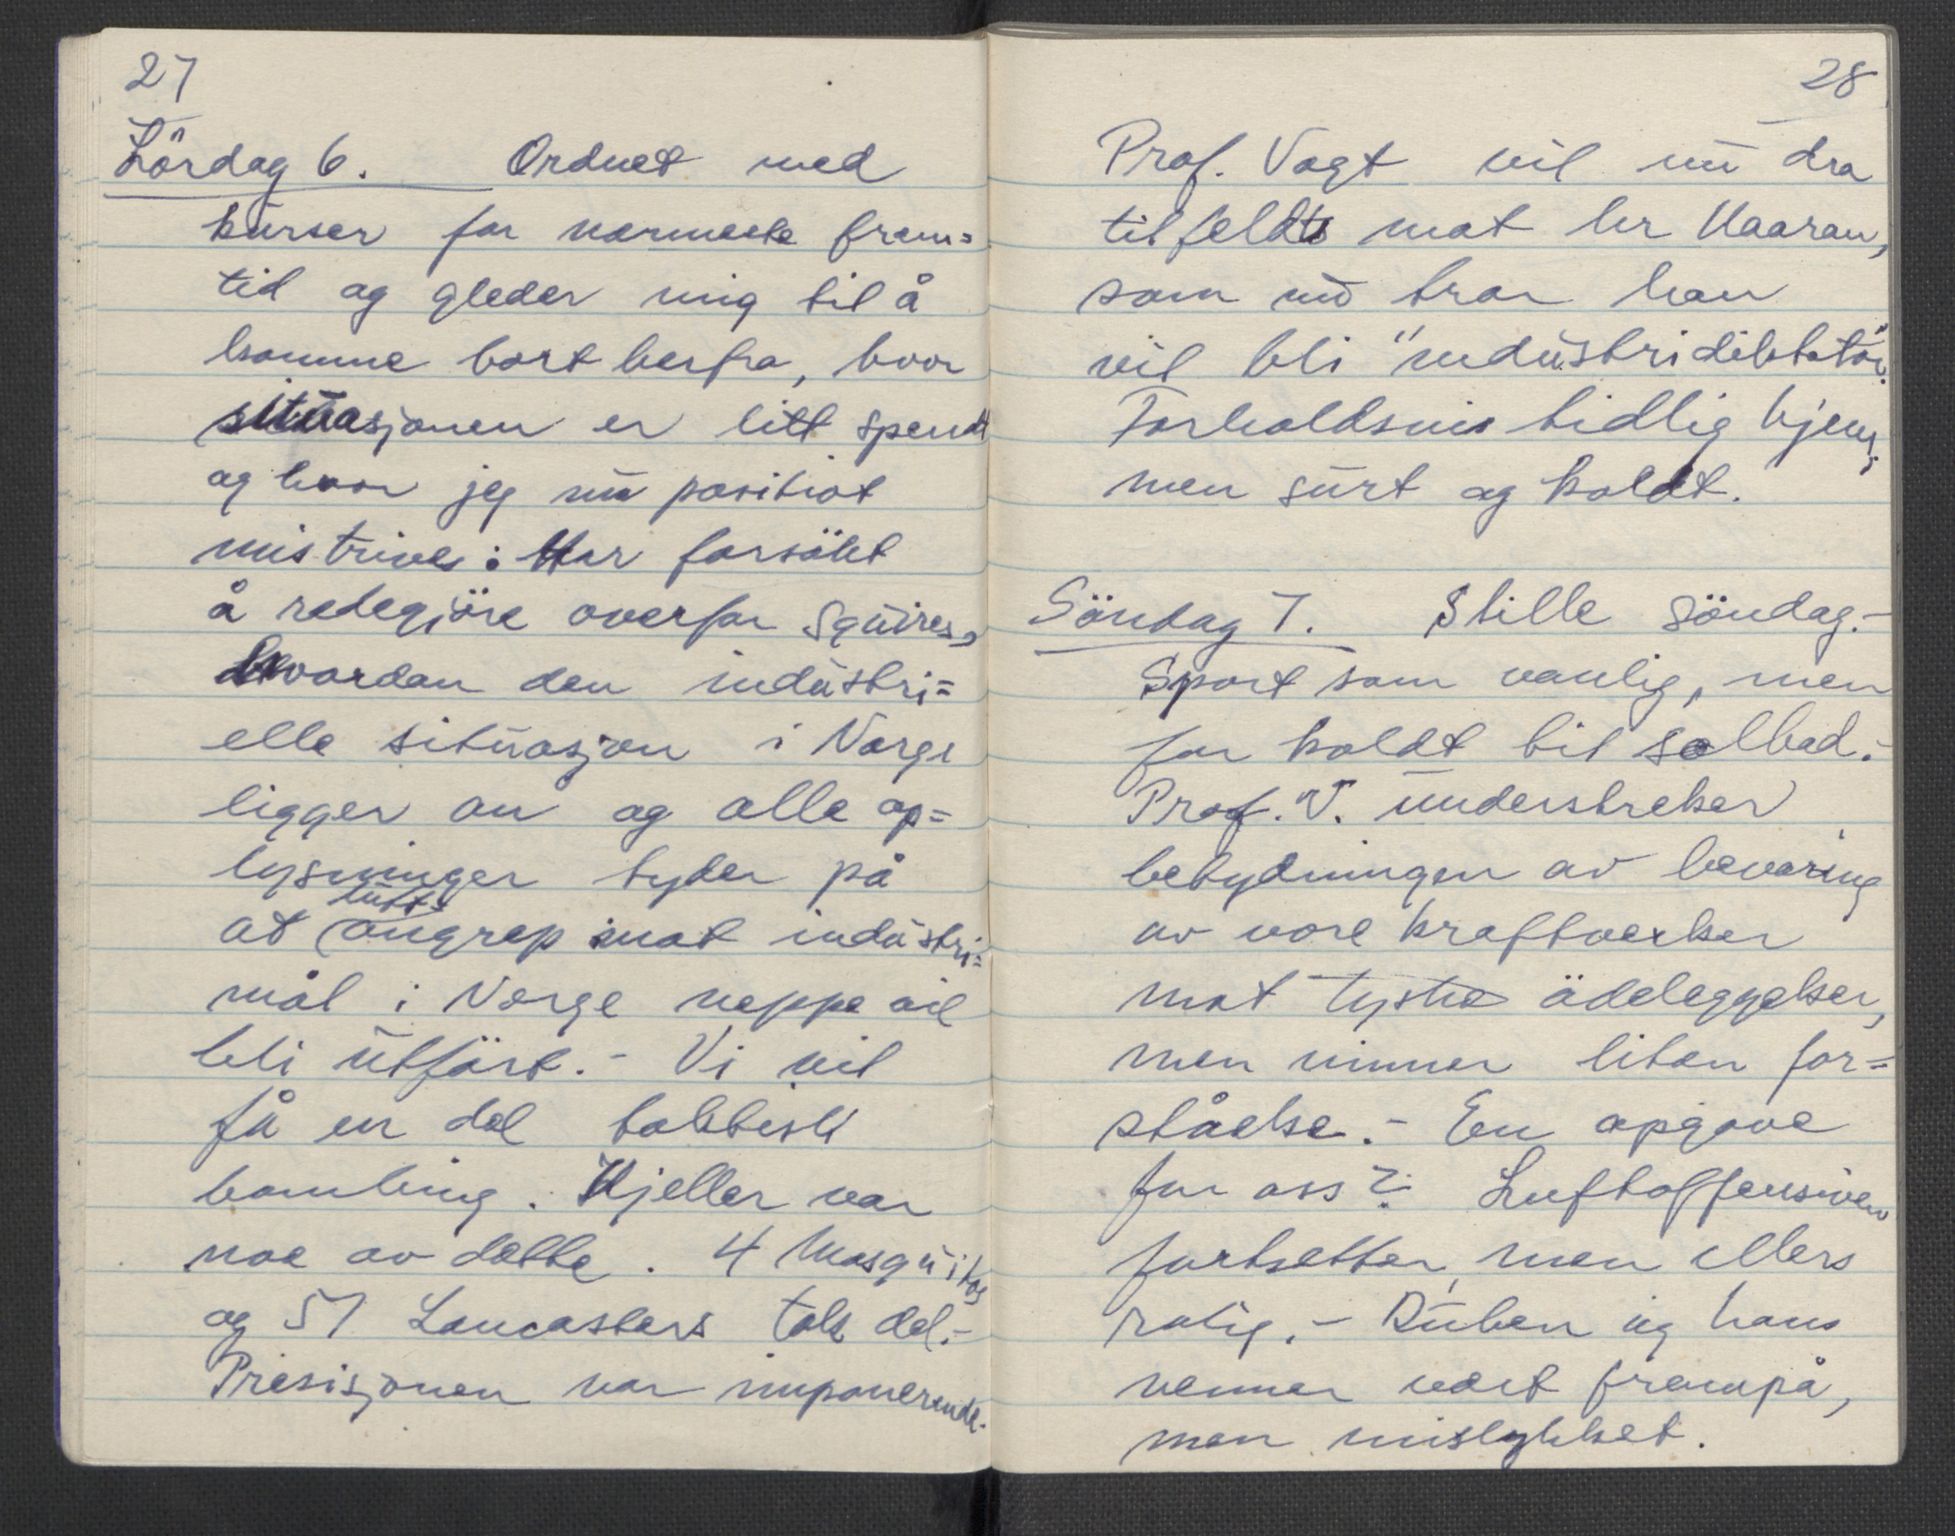 27
Lördag 6. Ordnet med
kurser for nærmeste frem=
tid og gleder mig til å
komme bort herfra, hvor
situasjonen er litt spendt
og hvor jeg nu positivt
mistrives. Har forsökt
å redegjöre overfor Squires,
hvordan den industri=
elle situasjon i Norge
ligger an og alle op=
lysninger tyder på
luft-
at angrep mot industri=
mål i Norge neppe vil
bli utfört. - Vi vil
få en del taktisk
bombing. Kjeller var
noe av dette. 4 Mosquitos
og 51 Lancasters tok del. -
Presisjonen var imponerende.
28
Prof. Vogt vil nu dra
tilfelds mot hr Maaran,
som nu tror han
vil bli "industridiktatör".
Forholdsvis tidlig hjem,
men surt og koldt.
Söndag 7. Stille söndag. -
Sport som vanlig, men
for koldt til solbad. -
Prof. V. understreker
betydningen av bevaring
av vore kraftverker
mot tyske ödeleggelser,
men vinner liten for=
ståelse. - En opgave
for oss? Luftoffensiven
fortsetter, men ellers
rolig. - Ruben og hans
venner vært frempå,
men mislykket.